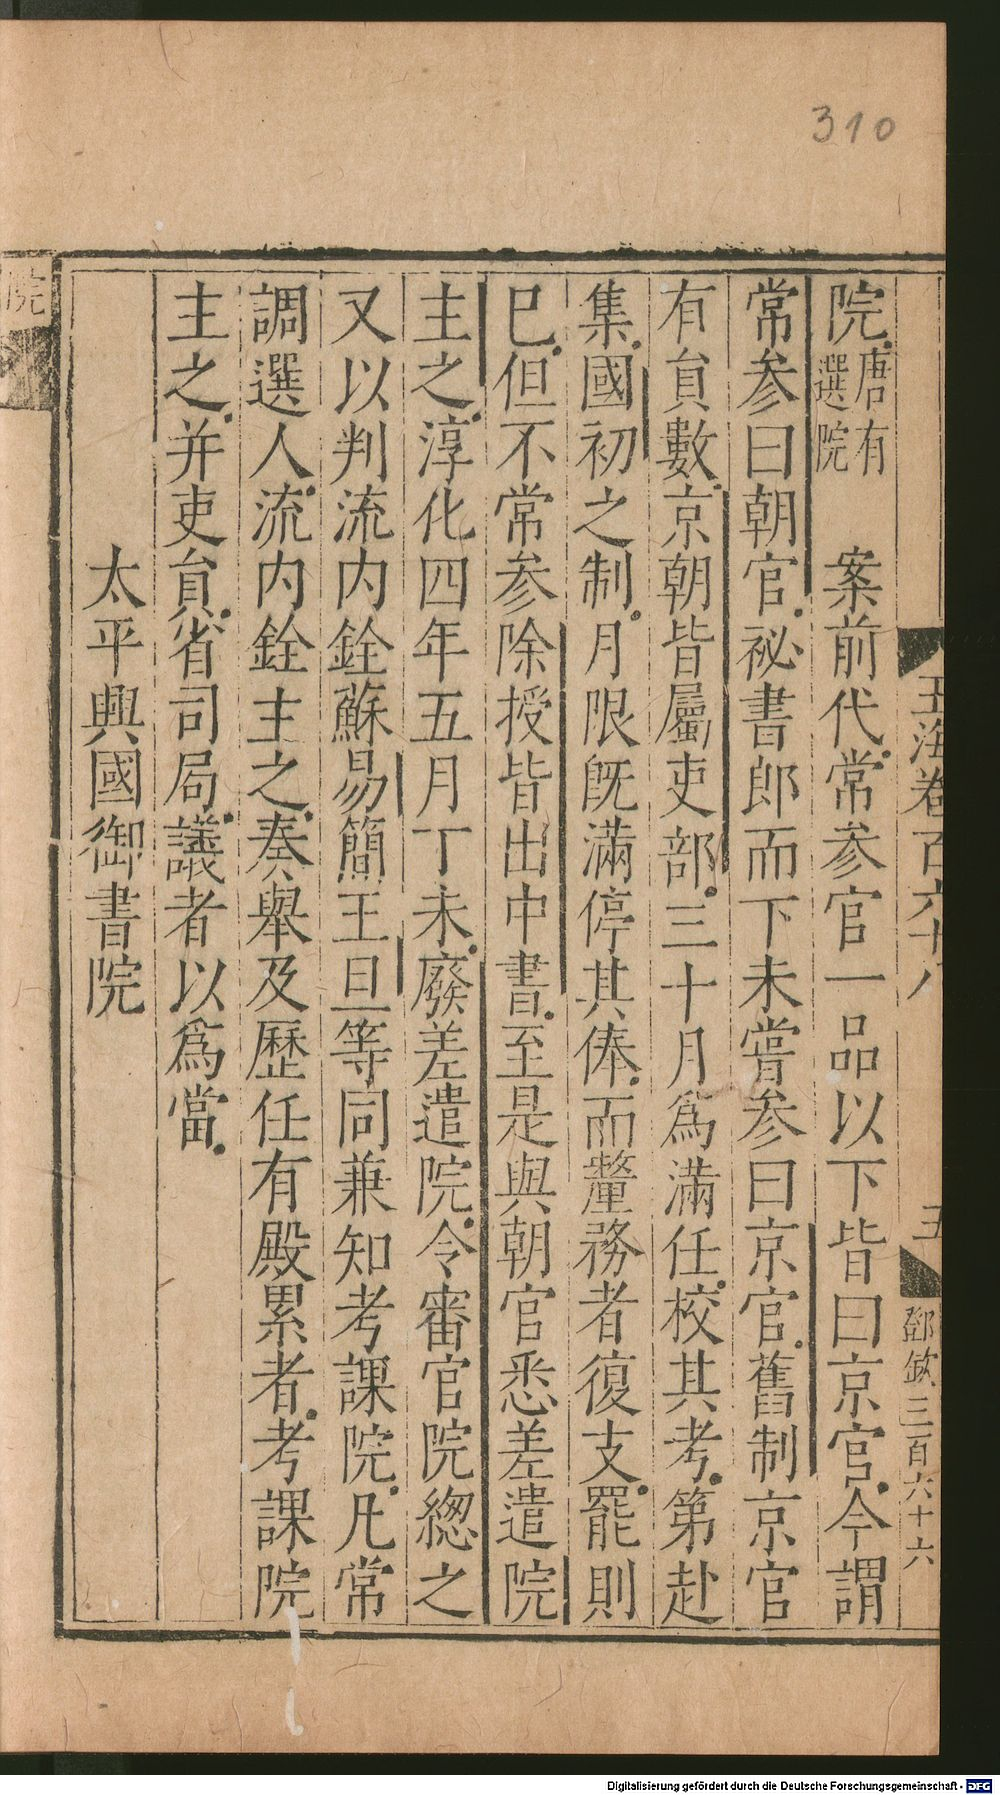 310
玉海卷百六十八
五
邵欽三百六十六
院唐有選院 案前代常参官一品以下皆曰京官今謂
常参曰朝官祕書郎而下未嘗参曰京官舊制京官
有負數京朝皆屬吏部三十月爲滿任校其考第赴
集國初之制月限旣滿停其俸而釐務者復支罷則
已但不常参除授皆出中書至是與朝官悉差遣院
主之淳化四年五月丁未廢差遣院令審官院緫之
又以判流内銓蘇易簡王旦等同兼知考課院凡常
調選人流内銓主之奏舉及歷任有殿累者考課院
主之并吏負省司局議者以爲當
太平興國御書院
院
Digitalisierung gefördert durch die Deutsche Forschungsgemeinschaft - DFG